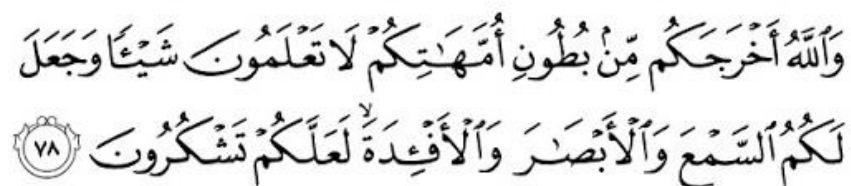 وَٱللَّهُ أَخۡرَجَكُم مِّنۢ بُطُونِ أُمَّهَٰتِكُمۡ لَا تَعۡلَمُونَ شَيۡـٔٗا وَجَعَلَ
لَكُمُ ٱلسَّمۡعَ وَٱلۡأَبۡصَٰرَ وَٱلۡأَفۡـِٔدَةَۙ لَعَلَّكُمۡ تَشۡكُرُونَ ٧٨